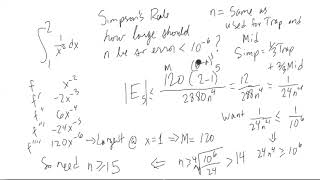 Simpson's Rule
how large should
n be so error < 10⁻⁶ ?
n = Same as
used for Trap and
Mid
Simp = ⅓Trap
+ ⅔Mid
∫₁² 1/x² dx
f x⁻²
f' -2x⁻³
f'' 6x⁻⁴
f''' -24x⁻⁵
f'''' 120x⁻⁶ → Largest @ x=1 ⇒ M= 120
M (b-a) 5
|E_s| ≤ 120(2-1) / 2880n⁴ = 12 / 288n⁴ = 1 / 24n⁴
want 1/24n⁴ ≤ 1/10⁶
24n⁴ ≥ 10⁶
So need n ≥ 15 ⇐ n > ⁴√(10⁶/24) > 14